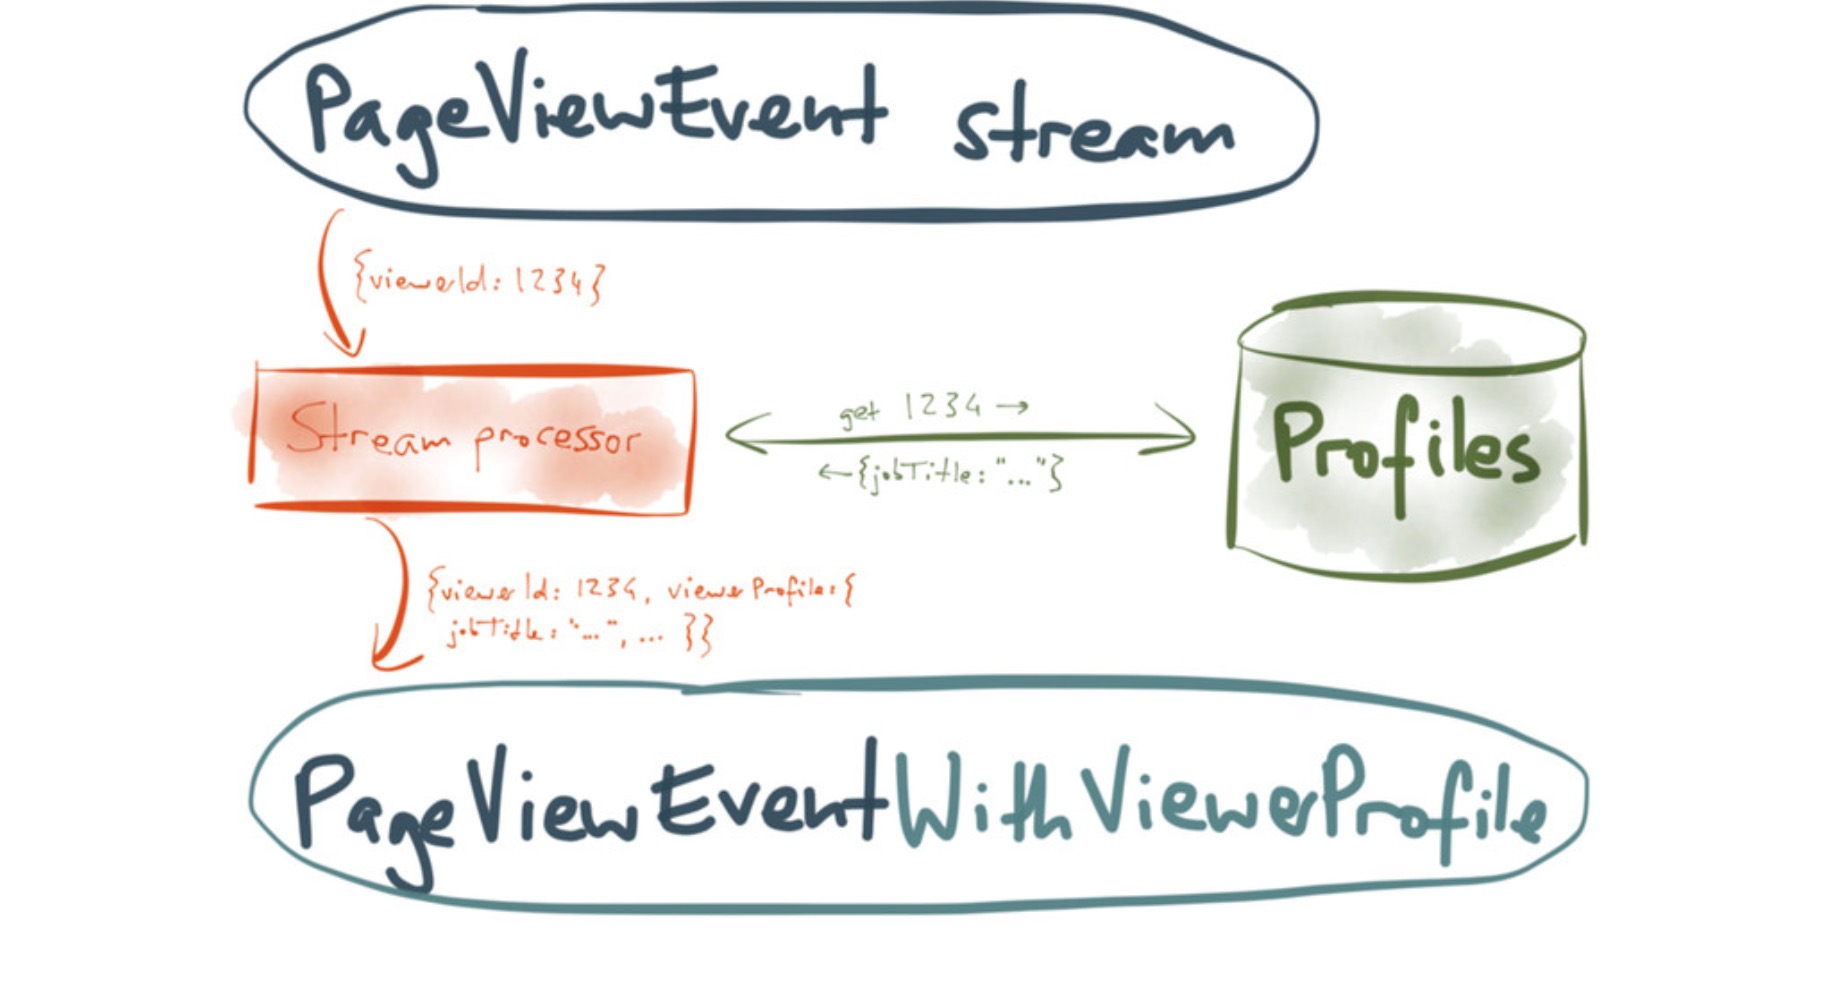 PageViewEvent stream
{viewerId: 1234}
Stream processor
get 1234 →
←{jobTitle: "..."}
Profiles
{viewerId: 1234, viewerProfile: {
jobTitle: "...", ... }}
PageViewEventWithViewerProfile